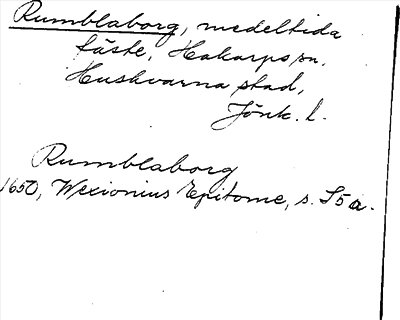 Rumblaborg, medeltida
fäste, Hakarps sn.
Huskvarna stad,
Jönk. l.
Rumblaborg
1650, Wexionius Epitome, s. S5a.